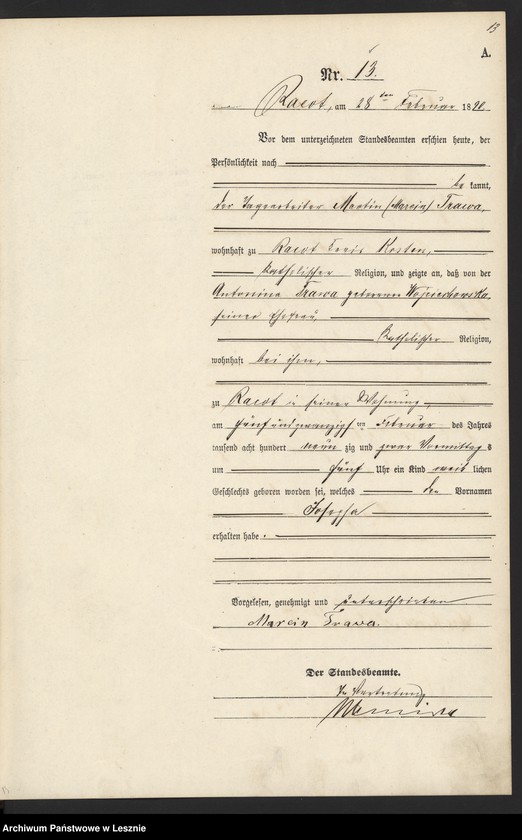 13
A.
Nr. 13.
Racot, am 28ten Februar 1890
Vor dem unterzeichneten Standesbeamten erschien heute, der
Persönlichkeit nach
be kannt,
der Tagearbeiter Martin (Marcin) Trawa,
wohnhaft zu Racot Kreis Kosten,
katholischer Religion, und zeigte an, daß von der
Antonina Trawa geborenen Wojciechowska
seiner Ehefrau,
katholischer Religion,
wohnhaft bei ihm,
zu Racot in seiner Wohnung
am fünfundzwanzigsten Februar des Jahres
tausend acht hundert neun zig und zwar Vormittag s
um fünf Uhr ein Kind weib lichen
Geschlechts geboren worden sei, welches den Vornamen
Josepha
erhalten habe.
Vorgelesen, genehmigt und unterschrieben
Marcin Trawa.
Der Standesbeamte.
In Vertretung
Archiwum Państwowe w Lesznie